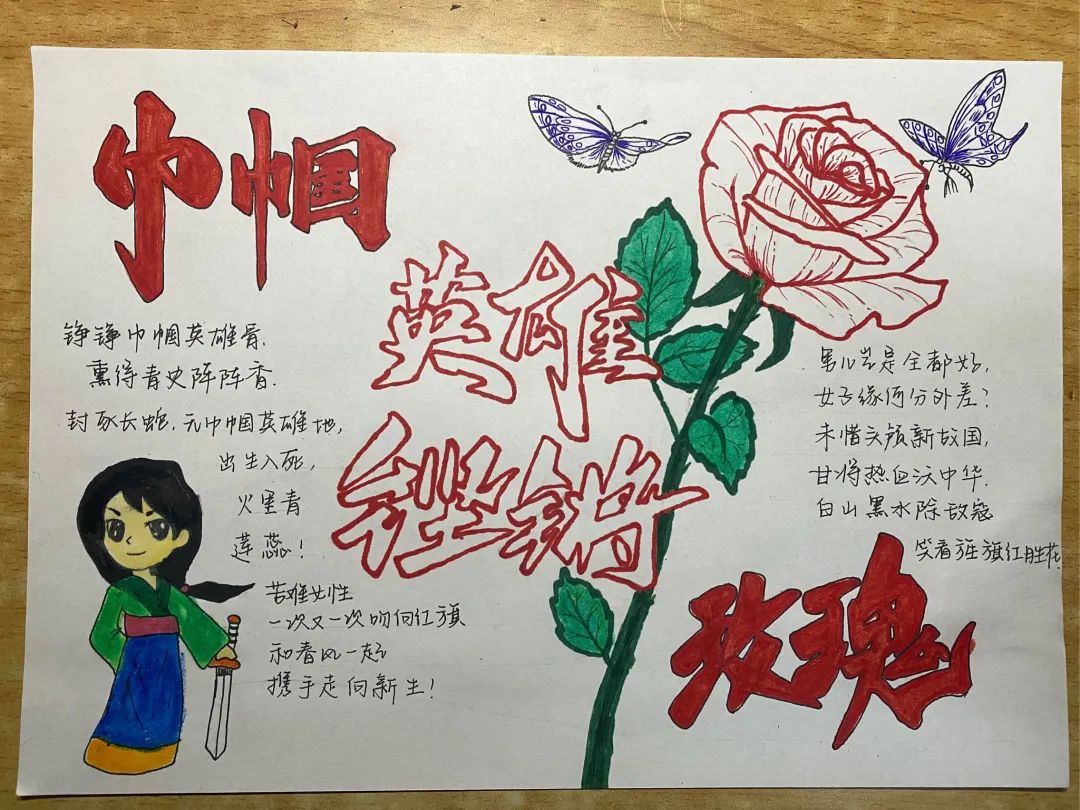 巾帼
英雄
铿锵
玫瑰
铮铮巾帼英雄骨.
熏得青史阵阵香.
封豕长蛇,无巾帼英雄地,
出生入死,
火里青
莲蕊!
苦难女性
一次又一次吻向红旗
和春风一起
携手走向新生!
男儿岂是全都好,
女子缘何分外差?
未惜头颅新故国,
甘将热血沃中华.
白山黑水除敌寇
笑看旌旗红胜花.